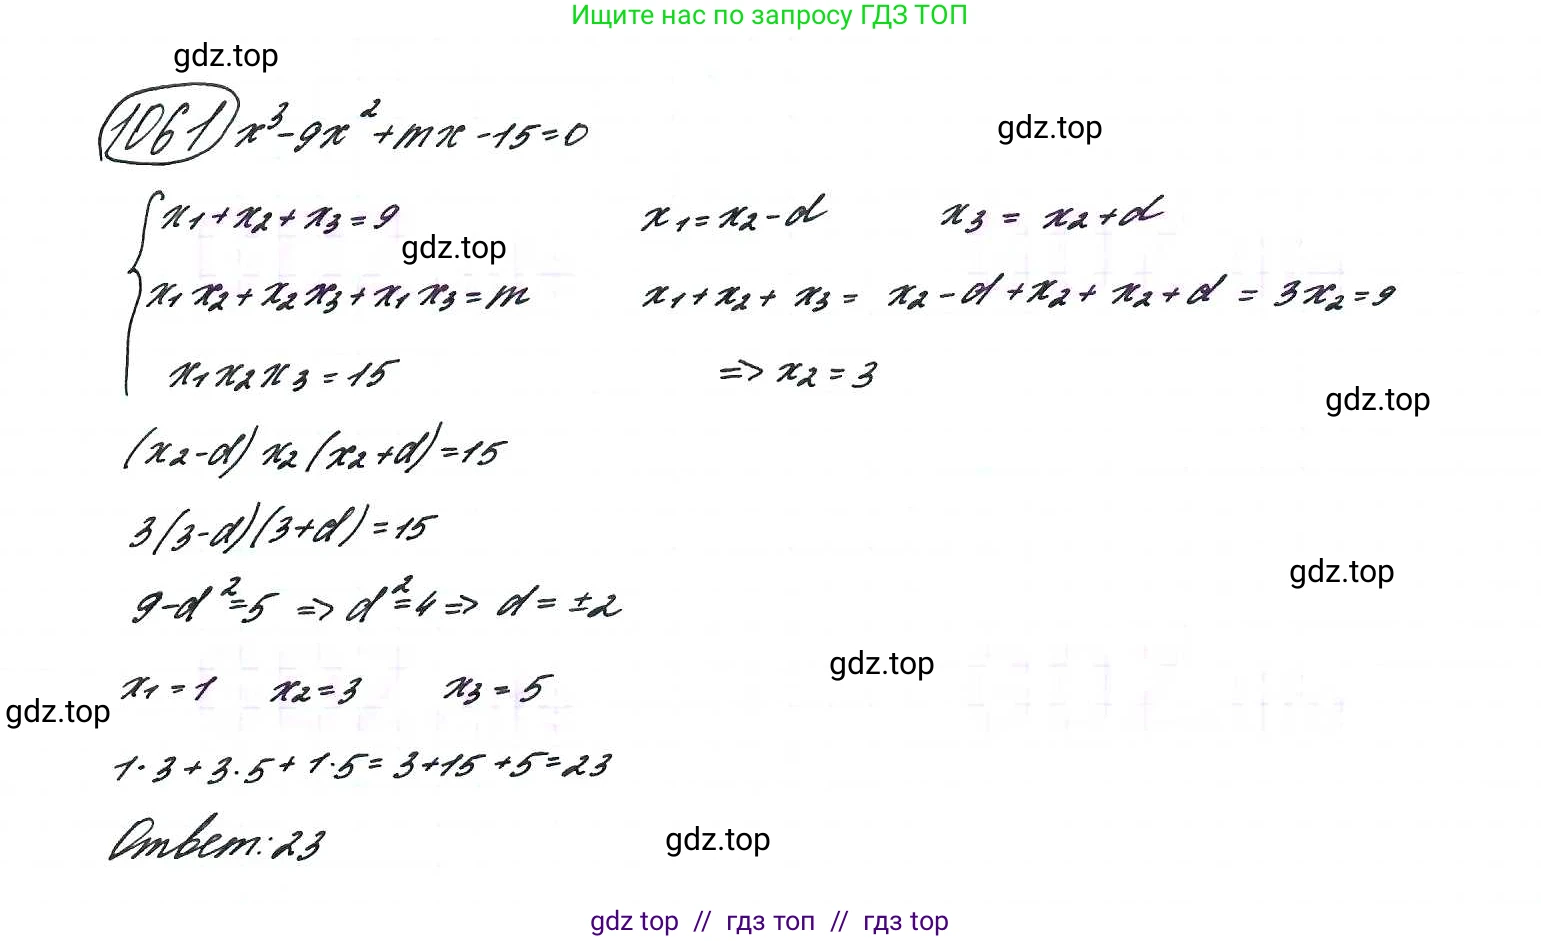 Ищите нас по запросу ГДЗ ТОП
gdz.top
1061 x³-9x²+mx-15=0
gdz.top
x₁+x₂+x₃=9 x₁=x₂-d x₃=x₂+d
gdz.top
x₁x₂+x₂x₃+x₁x₃=m x₁+x₂+x₃= x₂-d+x₂+x₂+d = 3x₂=9
x₁x₂x₃=15 => x₂=3
gdz.top
(x₂-d)x₂(x₂+d)=15
3(3-d)(3+d)=15
gdz.top
9-d²=5 => d²=4 => d=±2
gdz.top
x₁=1 x₂=3 x₃=5
gdz.top
1·3+3·5+1·5=3+15+5=23
Ответ: 23
gdz.top
gdz top // гдз топ // гдз top